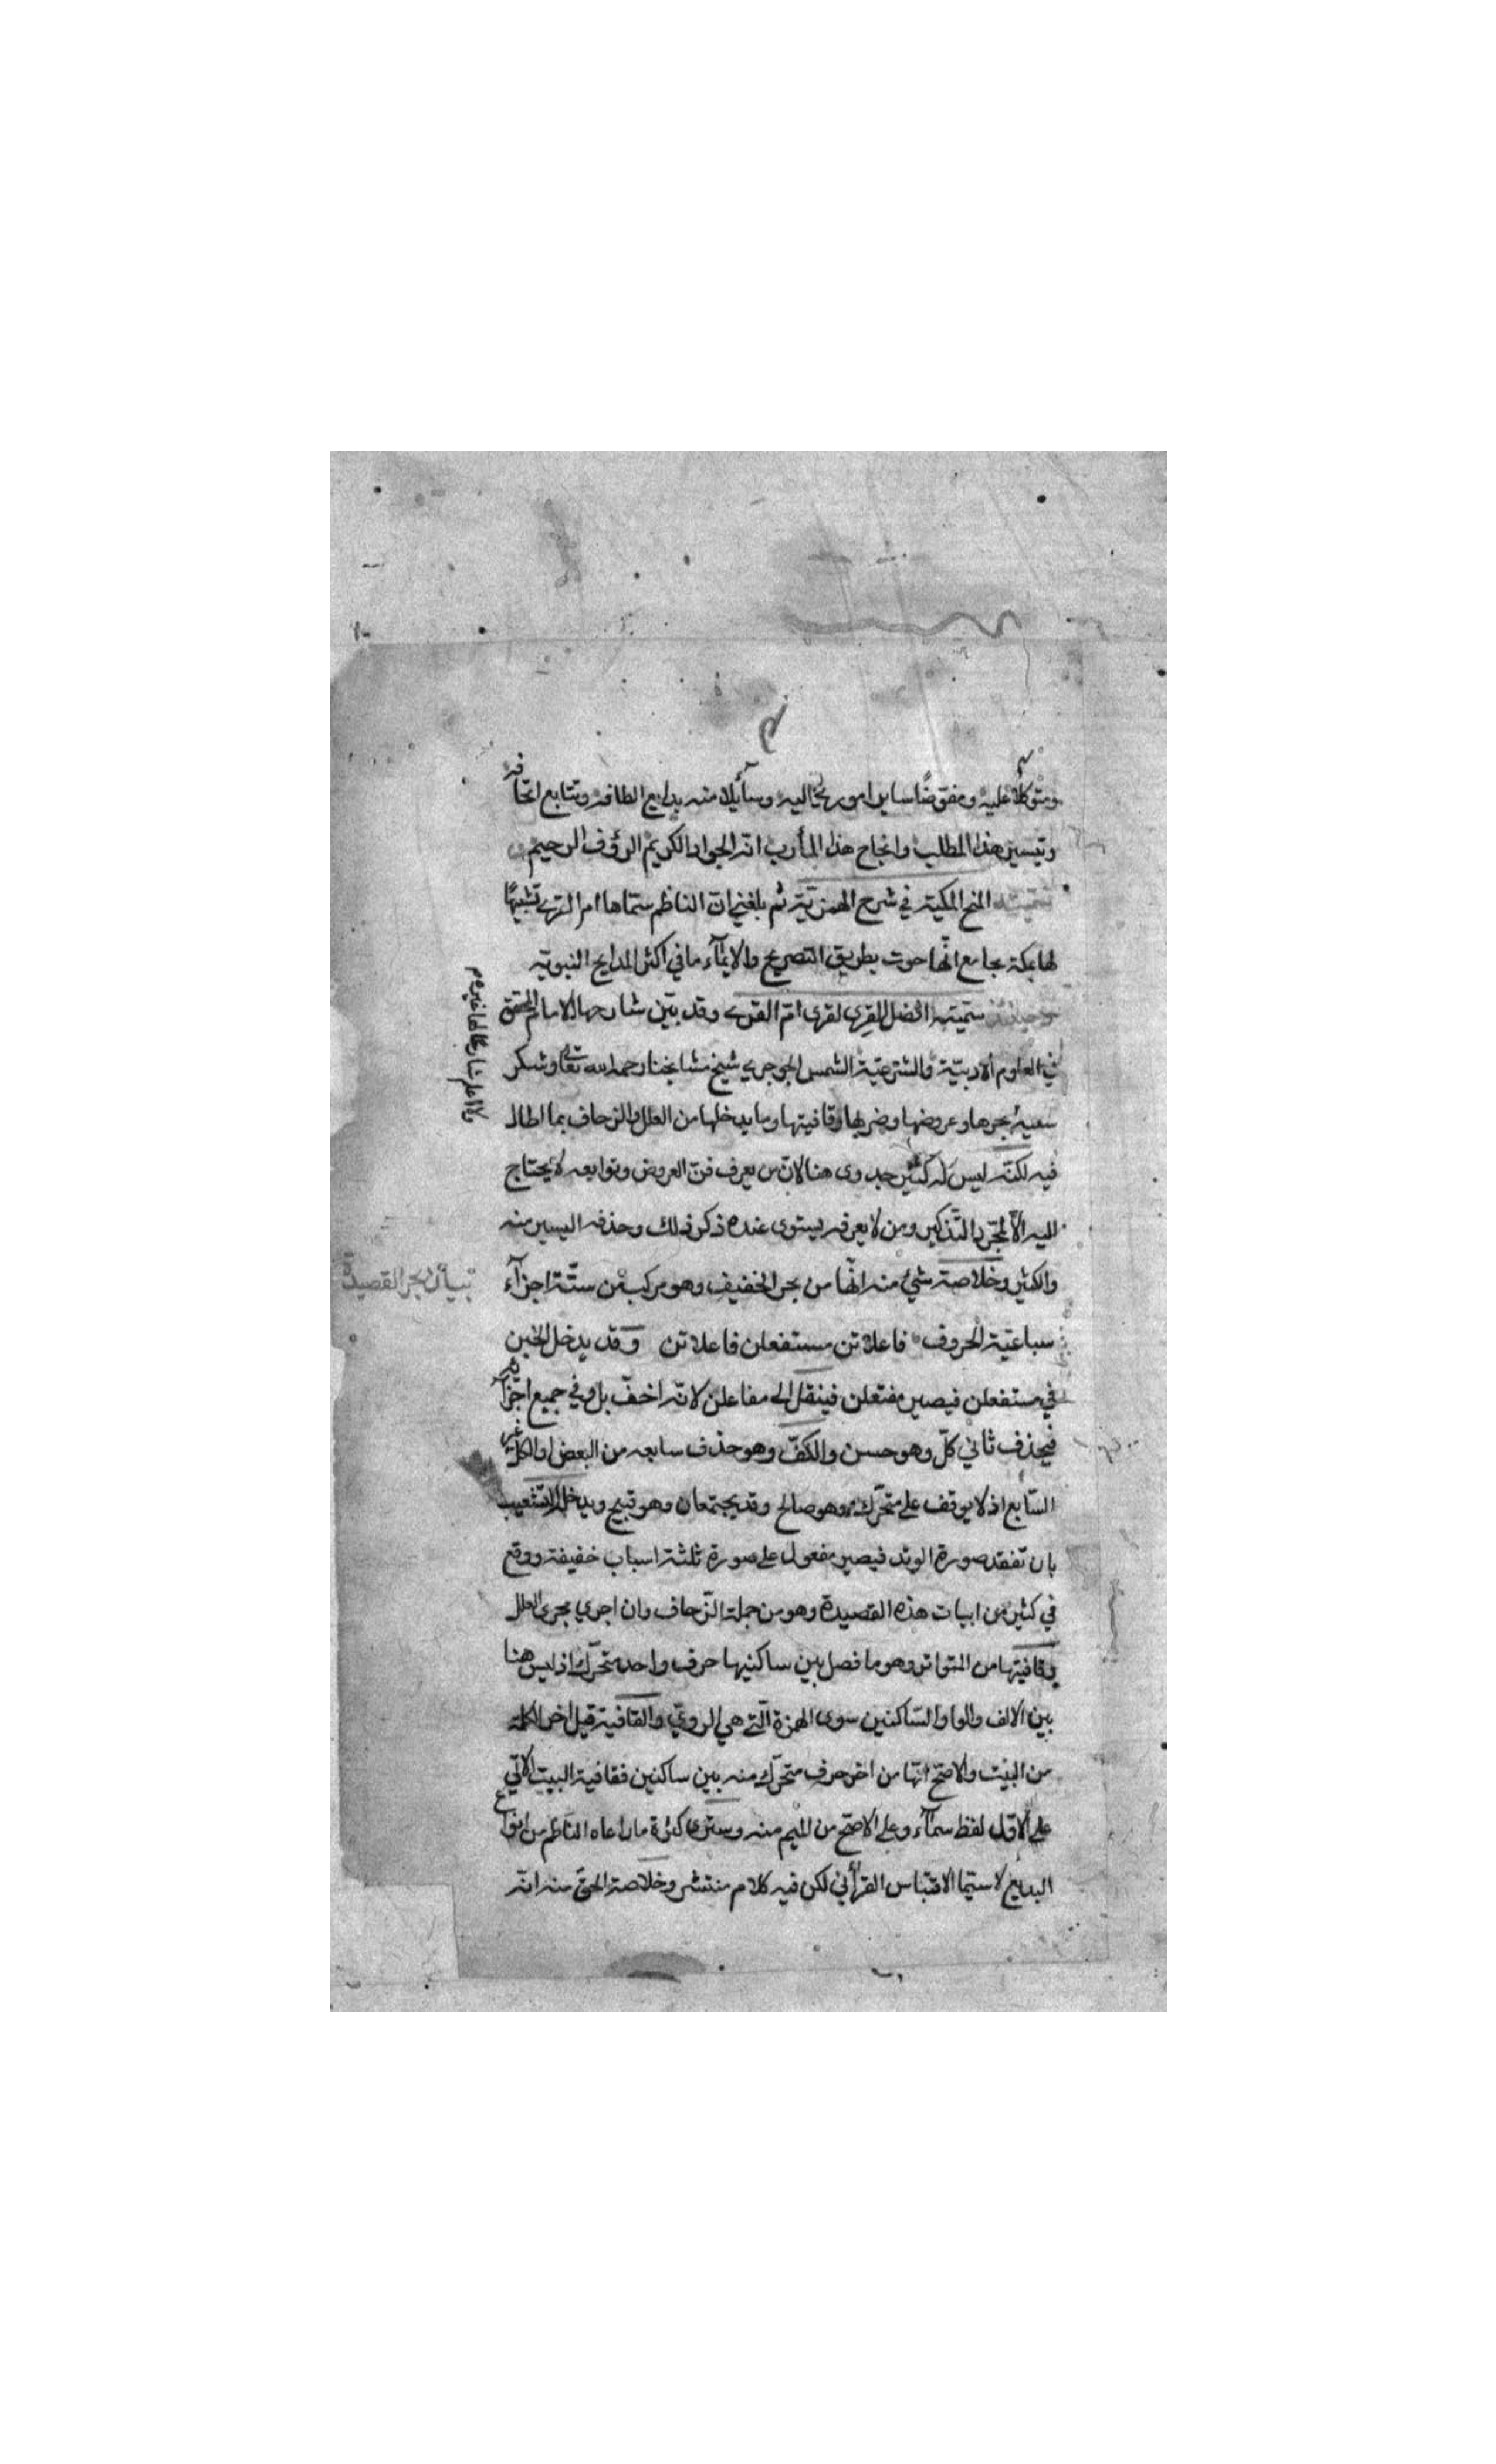 ومتوكلا عليه ومفوضًا سايل اموري اليه وسآيلا منه بدايع الطافه وتتابع اتحافه
وتيسير هذا المطلب وانجاح هذا المأرب انه الجواد الكريم الرؤف الرحيم
المنح المكية في شرح الهمزية ثم بلغني ان الناظم سماها ام القرى تشبيهًا
لها بمكة بجامع انها حوت بطريق التصريح والايمآء ما في اكثر المدايح النبوية
وحينئذ سميته افضل القرى لقرى ام القرى وقد بين شارحها الامام المحقق
في العلوم الادبية والشرعية الشمس الجوجري شيخ مشايخنا رحمه الله تعالى وشكر
سعيه بحرها وعروضها وضربها وقافيتها وما يدخلها من العلل والزحاف بما اطال
فيه لكنه ليس له كثير جدوى هنا لان من يعرف فن العروض وتوابعه لا يحتاج
اليه الا لمجرد التذكير ومن لا يعرفه يستوى عنده ذكر ذلك وحذفه اليسير منه
والكثير وخلاصة شئ منه انها من بحر الخفيف وهو مركب من ستة اجزآء
سباعية الحروف فاعلاتن مستفعلن فاعلاتن وقد يدخل الخبن
في مستفعلن فيصير مفتعلن فينقل الى مفاعلن لانه اخف بل وفي جميع اجزآئه
فيحذف ثاني كل وهو حسن والكف وهو حذف سابعه من البعض او الكل غير
السابع اذ لا يوقف على متحرك وهو صالح وقد يجتمعان وهو قبيح ويدخله التشعيب
بان تفقد صورة الوتد فيصير مفعول على صورة ثلثة اسباب خفيفة ووقع
في كثير من ابيات هذه القصيدة وهو من جملة الزحاف وان اجري مجرى العلل
وقافيتها من المتواتر وهو ما فصل بين ساكنيها حرف واحد متحرك اذ ليس هنا
بين الالف والواو الساكنين سوى الهمزة التي هي الروي والقافية قيل اخر الكلمة
من البيت والاصح انها من اخر حرف متحرك منه بين ساكنين فقافية البيت الاتي
على الاول لفظ سمآء وعلى الاصح من الميم منه وسترى كثرة ما راعاه الناظم من انواع
البديع لا سيما الاقتباس القرأني لكن فيه كلام منتشر وخلاصة الحق منه انه
بيان بحر القصيدة